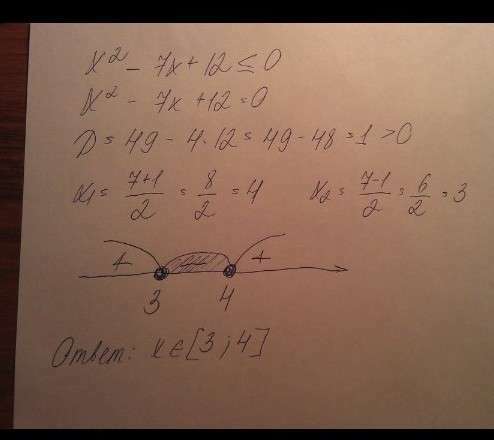 x² - 7x + 12 ≤ 0
x² - 7x + 12 = 0
D = 49 - 4·12 = 49 - 48 = 1 > 0
x₁ = (7+1)/2 = 8/2 = 4 x₂ = (7-1)/2 = 6/2 = 3
+ - +
3 4
Ответ: x ∈ [3 ; 4]